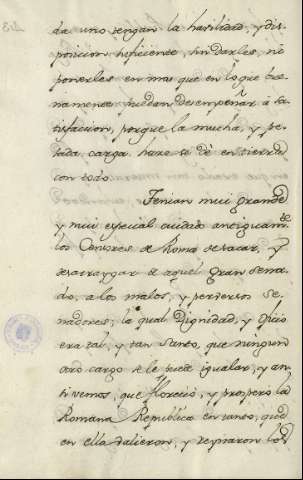 da uno tengan la havilidad, y dis-
posicion suficiente, sin darles, ni
ponerles en mas que en lo que bue-
namente puedan desempeñar à sa-
tisfacion, porque la mucha, y pe-
sada carga haze se dè en tierra
con todo.
Tenian mui grande
y mui especial cuidado antiguamte
los Censores de Roma de sacar, y
desarraygar de aquel gran Sena-
do, a los malos, y perversos Se-
nadores; la qual Dignidad, y Oficio
era tal, y tan Santo, que ningun
otro cargo se le podia igualar, y an-
si vemos, que floreció, y prosperó la
Romana Republica en tanto, que
en ella salieron, y reynaron los